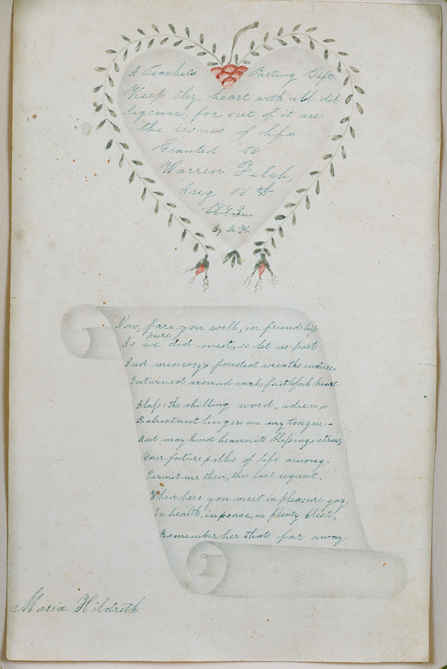 A Teachers Parting Gift
Keep thy heart with all dil
ligence; for out of it are
the issues of life
Granted to
Warren Felch,
Aug 10 th
1843
By M. H.
Now, fare you well, in friendship
sure
As we did meet, so let us part
And memory's fondest wreaths endure.
Entwined around each faithful heart
the chilling word, adieu,
Reluctant lingers on my tongue
But may kind heaven its blessings strew,
Your future paths of life among.
Permit me then, this last request,
When here you meet in pleasure gay,
In health, in peace, in plenty blest,
Remember her that's far away
Maria Hildreth